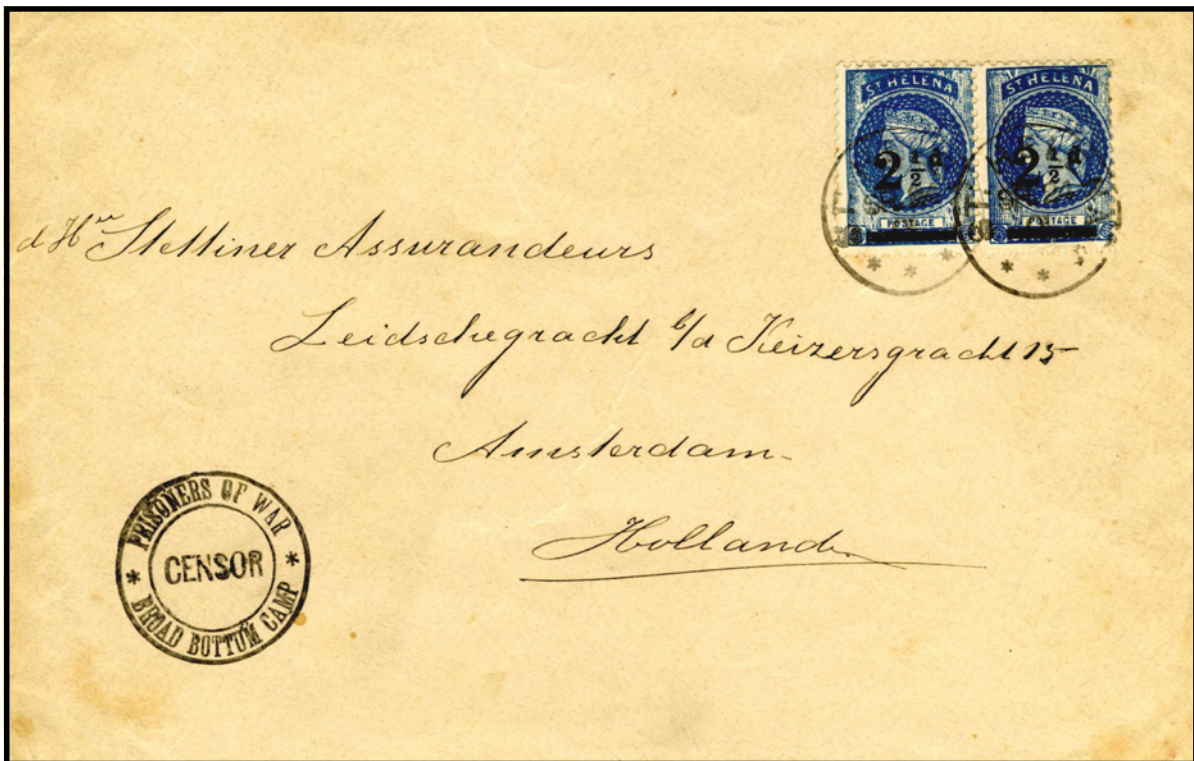 ST HELENA ST HELENA
2½d 2½d
POSTAGE POSTAGE
d Hrn Stettiner Assurandeurs
Leidschegracht b/d Keizersgracht 15
Amsterdam
Holland.
PRISONERS OF WAR
CENSOR
BROAD BOTTUM CAMP